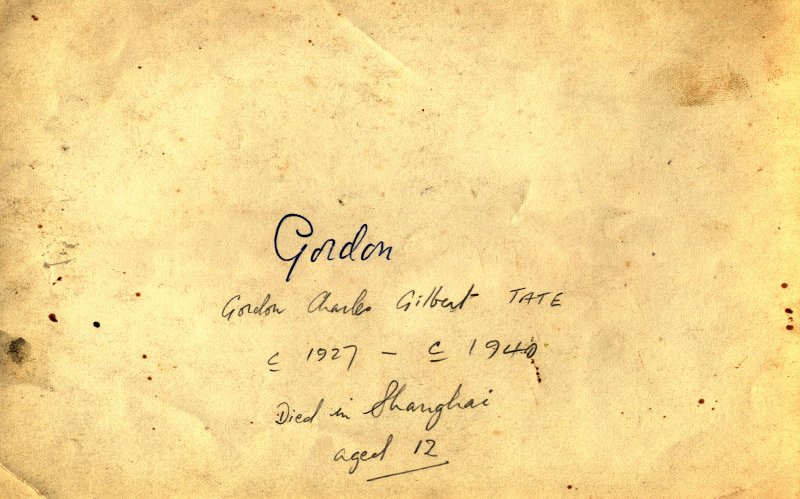 Gordon
Gordon Charles Gilbert TATE
c 1927 - c 1940
Died in Shanghai
aged 12